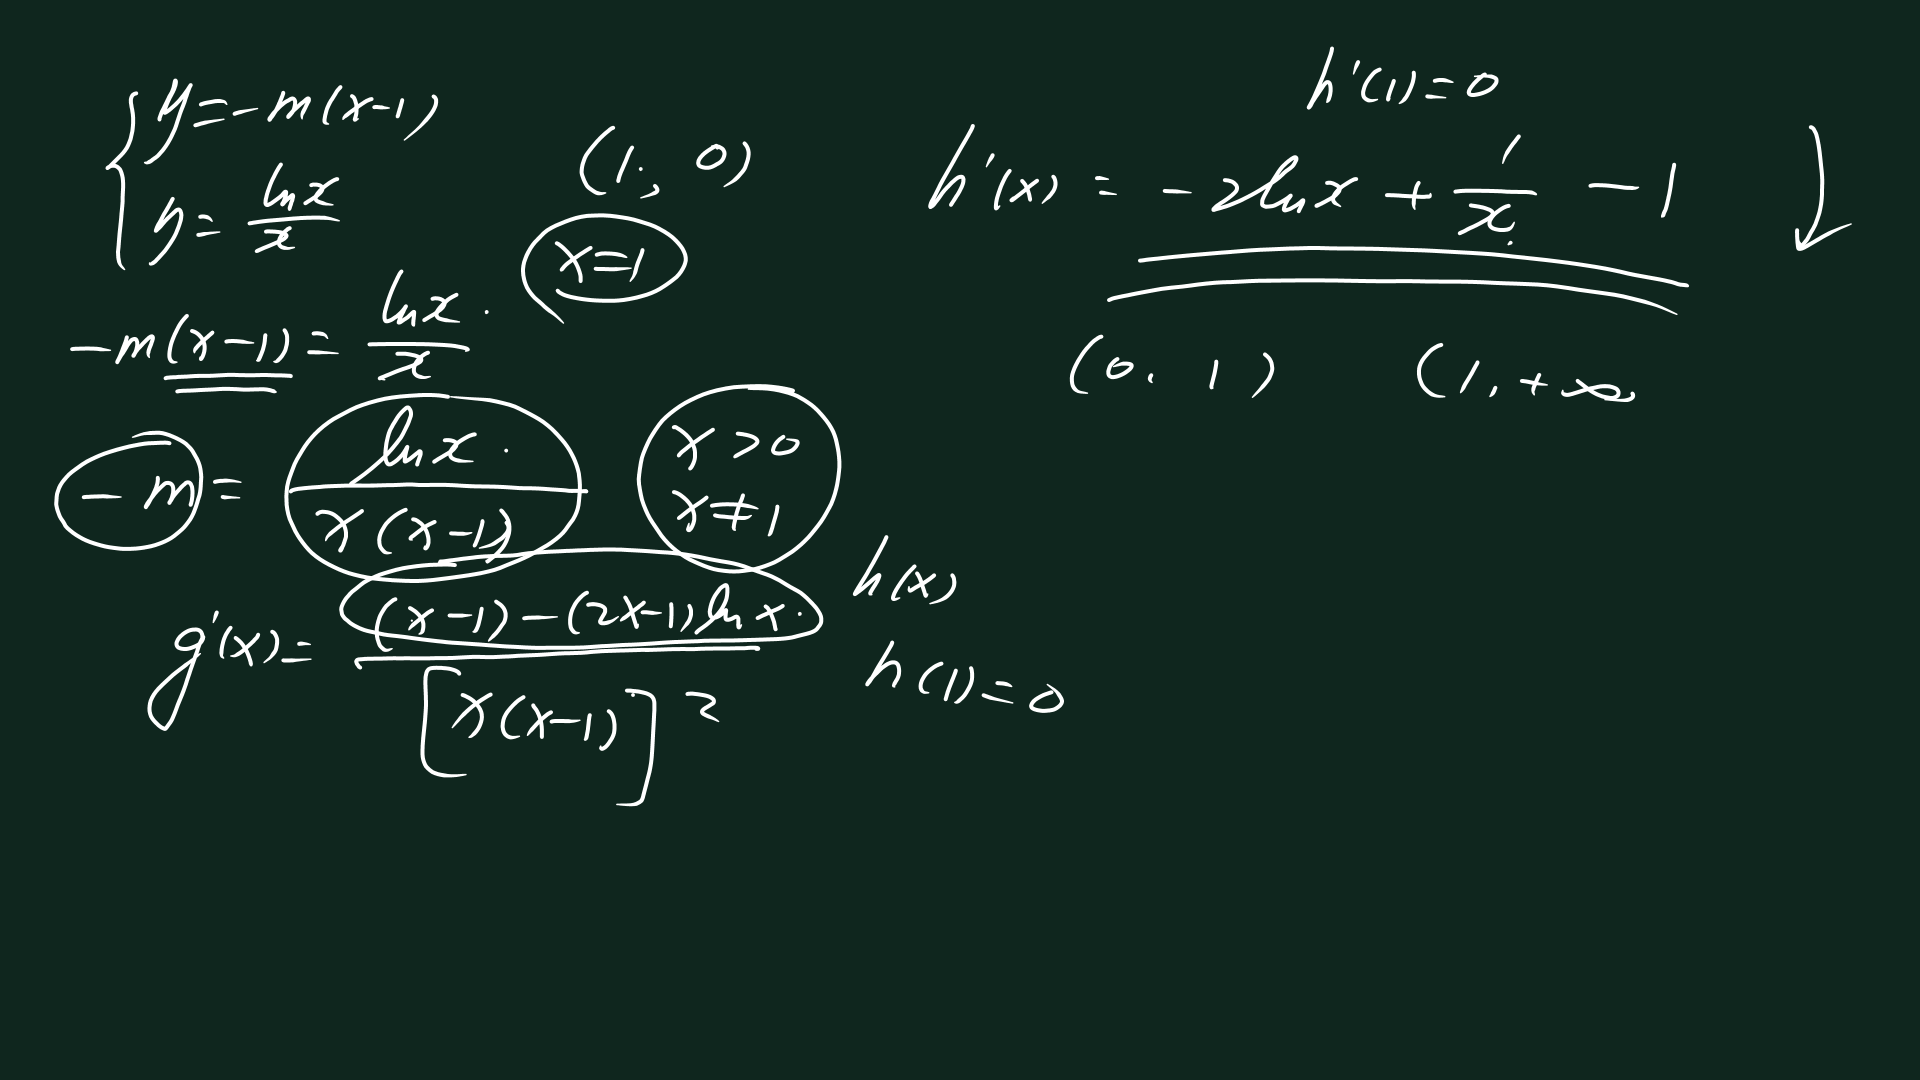 y=-m(x-1)
y=\frac{ln x}{x}
(1, 0)
x=1
-m(x-1)=\frac{ln x}{x}
-m=\frac{ln x}{x(x-1)}
x>0
x≠1
g'(x)=\frac{(x-1)-(2x-1)ln x}{[x(x-1)]^2}
h(x)
h(1)=0
h'(1)=0
h'(x)=-2ln x+\frac{1}{x}-1 ↓
(0, 1) (1, +∞